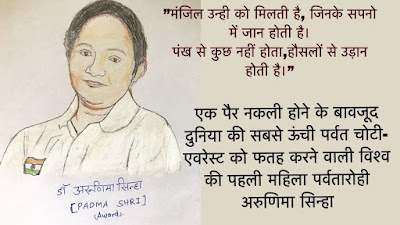 "मंजिल उन्ही को मिलती है, जिनके सपनो
में जान होती है।
पंख से कुछ नहीं होता,हौसलों से उड़ान
होती है।"
एक पैर नकली होने के बावजूद
दुनिया की सबसे ऊंची पर्वत चोटी-
एवरेस्ट को फतह करने वाली विश्व
की पहली महिला पर्वतारोही
अरुणिमा सिन्हा
डॉ अरूणिमा सिन्हा
[PADMA SHRI]
(Award).